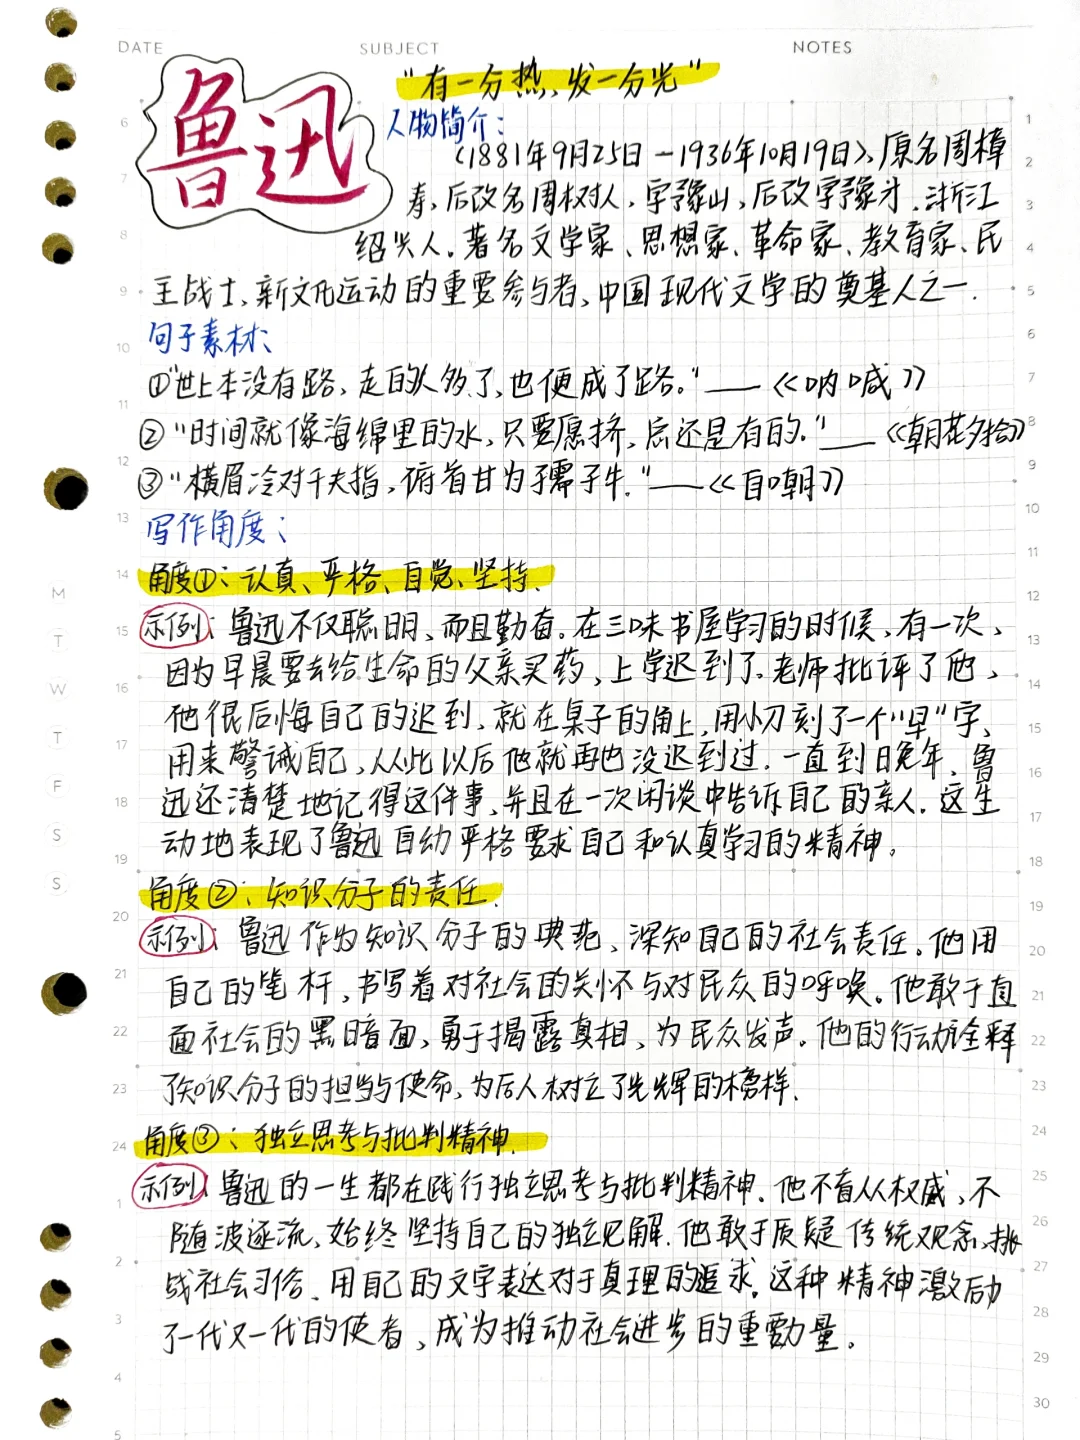 DATE SUBJECT NOTES
鲁迅
"有一分热,发一分光"
人物简介:
(1881年9月25日-1936年10月19日),原名周樟
寿,后改名周树人,字豫山,后改字豫才.浙江
绍兴人.著名文学家、思想家、革命家、教育家、民
主战士,新文化运动的重要参与者,中国现代文学的奠基人之一.
句子素材:
①"世上本没有路,走的人多了,也便成了路."——《呐喊》
②"时间就像海绵里的水,只要愿挤,总还是有的."——《朝花夕拾》
③"横眉冷对千夫指,俯首甘为孺子牛."——《自嘲》
写作角度:
角度①:认真、严格、自觉、坚持.
示例:鲁迅不仅聪明,而且勤奋.在三味书屋学习的时候,有一次,
因为早晨要去给生命的父亲买药,上学迟到了.老师批评了他,
他很后悔自己的迟到,就在桌子的角上,用小刀刻了一个"早"字,
用来警诫自己,从此以后他就再也没迟到过.一直到晚年,鲁
迅还清楚地记得这件事,并且在一次闲谈中告诉自己的亲人.这生
动地表现了鲁迅自幼严格要求自己和认真学习的精神。
角度②:知识分子的责任.
示例:鲁迅作为知识分子的典范,深知自己的社会责任.他用
自己的笔杆,书写着对社会的关怀与对民众的呼唤。他敢于直
面社会的黑暗面,勇于揭露真相,为民众发声。他的行动诠释
了知识分子的担当与使命,为后人树立了光辉的榜样.
角度③:独立思考与批判精神.
示例:鲁迅的一生都在践行独立思考与批判精神.他不盲从权威,不
随波逐流,始终坚持自己的独立见解.他敢于质疑传统观念,挑
战社会习俗,用自己的文字表达对于真理的追求。这种精神激励
了一代又一代的使者,成为推动社会进步的重要力量。